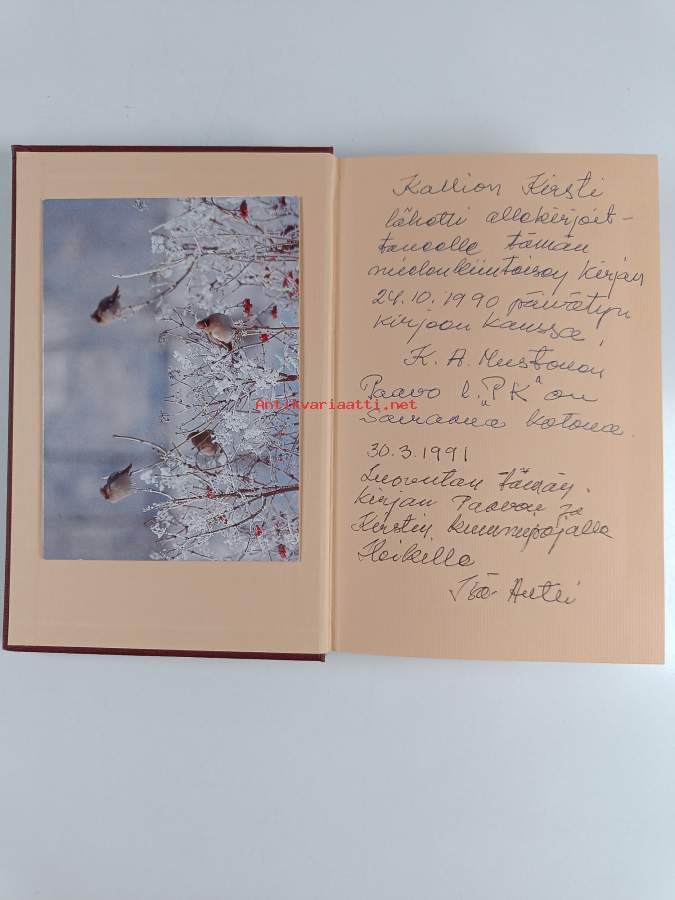 Kallion Kirsti
lähetti allekirjoit-
taneelle tämän
mielenkiintoisen kirjan
24.10.1990 päivätyn
kirjeen kanssa,
K. A. Mustonen
Paavo l. "PK" on
sairaana kotona.
30.3.1991
Luovutan tämän
kirjan Paavon ja
Kirstin kummipojalle
Heikille
Isä-Antti
Antikvariaatti.net